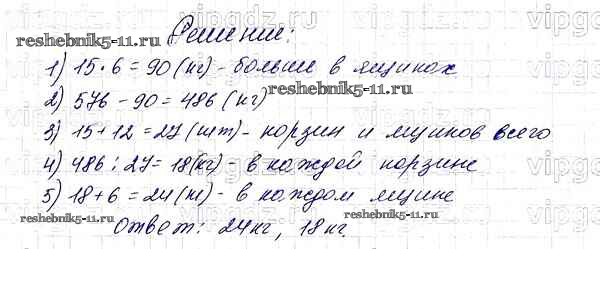 Решение:
reshebnik5-11.ru
1) 15 · 6 = 90 (кг) - больше в ящиках
2) 576 - 90 = 486 (кг)
reshebnik5-11.ru
3) 15 + 12 = 27 (шт) - корзин и ящиков всего
4) 486 : 27 = 18 (кг) - в каждой корзине
5) 18 + 6 = 24 (кг) - в каждом ящике
reshebnik5-11.ru
reshebnik5-11.ru
Ответ: 24 кг, 18 кг.